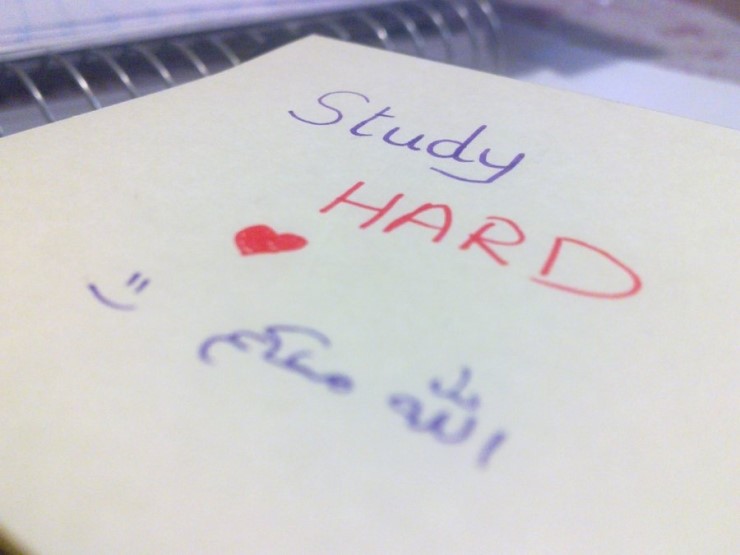 Study
HARD
الله معكم